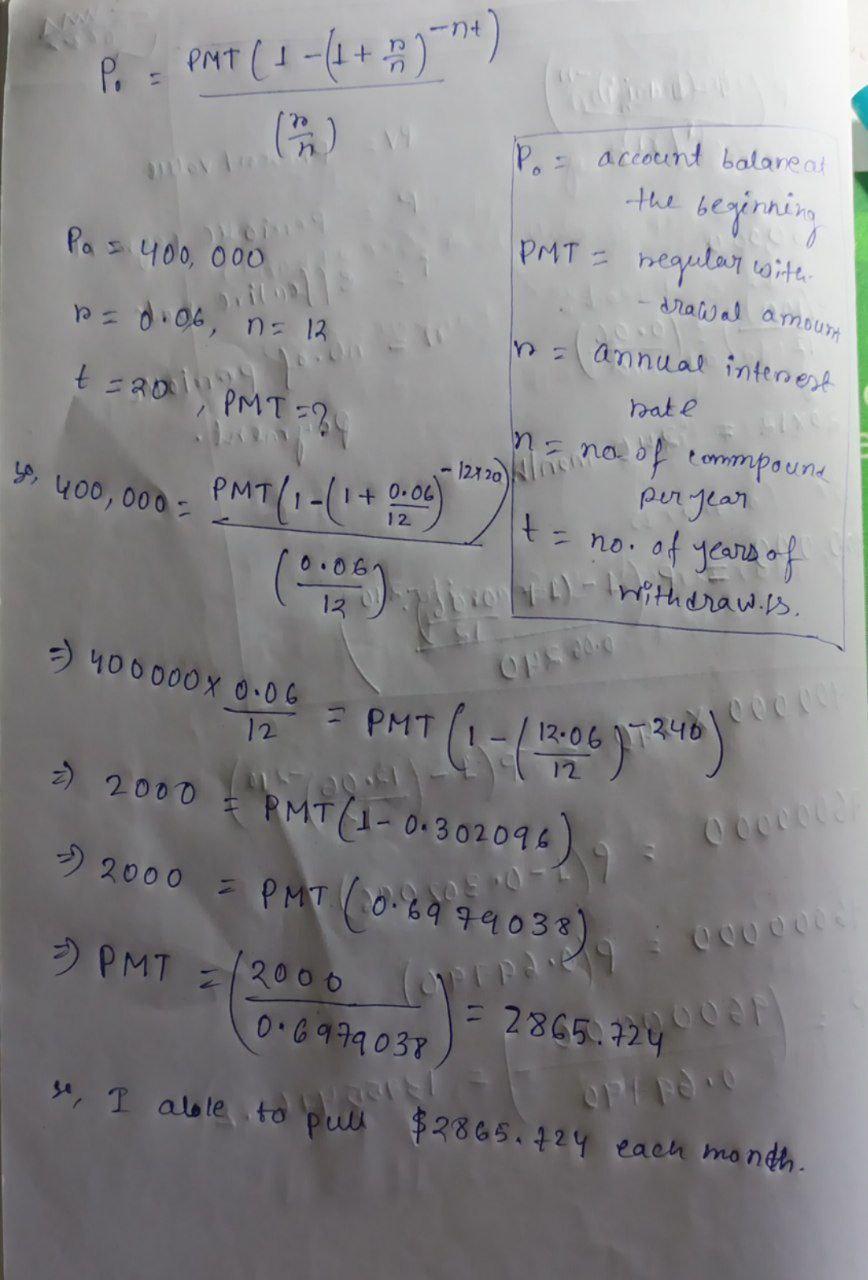 P₀ = PMT(1-(1+r/n)^-nt) / (r/n)
P₀ = 400,000
r = 0.06, n = 12
t = 20, PMT = ?
P₀ = account balane at
the beginning
PMT = regular with-
-drawal amount
r = annual interest
rate
n = no. of commpound
per year
t = no. of years of
withdraw.ls.
so, 400,000 = PMT(1-(1+0.06/12)^-12×20) / (0.06/12)
⇒ 400000 × 0.06/12 = PMT(1-(12.06/12)^-240)
⇒ 2000 = PMT(1-0.302096)
⇒ 2000 = PMT(0.6979038)
⇒ PMT = (2000/0.6979038) = 2865.724
so, I able to pull $2865.724 each month.